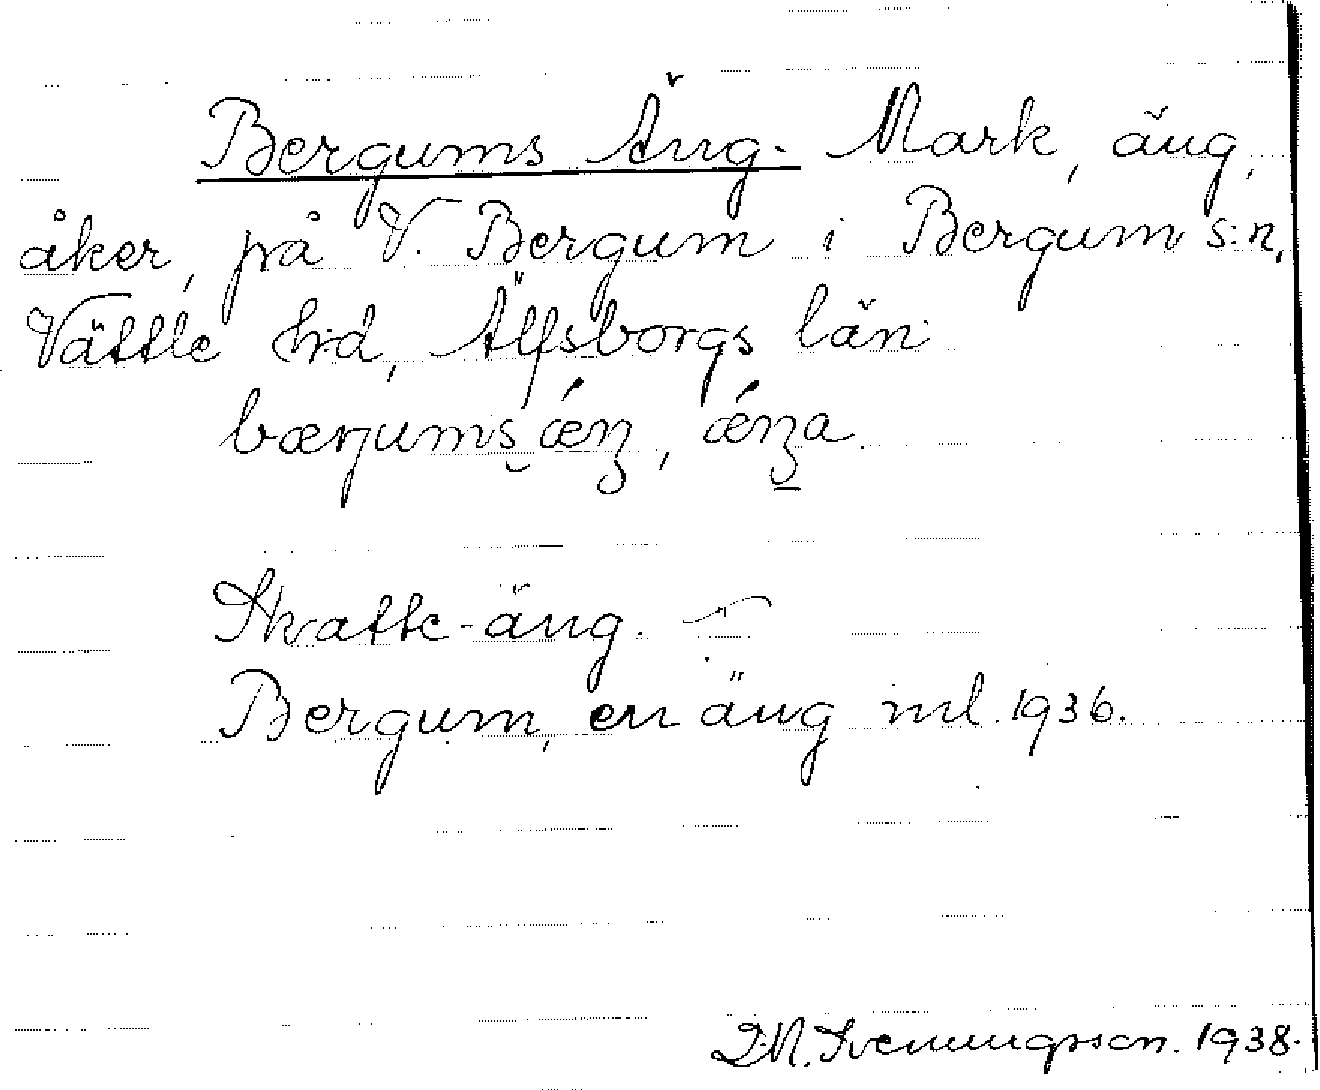 Bergums Äng. Mark, äng,
åker, på V. Bergum i Bergum s:n,
Vättle h:d, Älfsborgs län
bærjums ǽŋ, ǽŋa.
Skatte-äng.
Bergum, en äng ml. 1936.
D.N. Svenningsson. 1938.